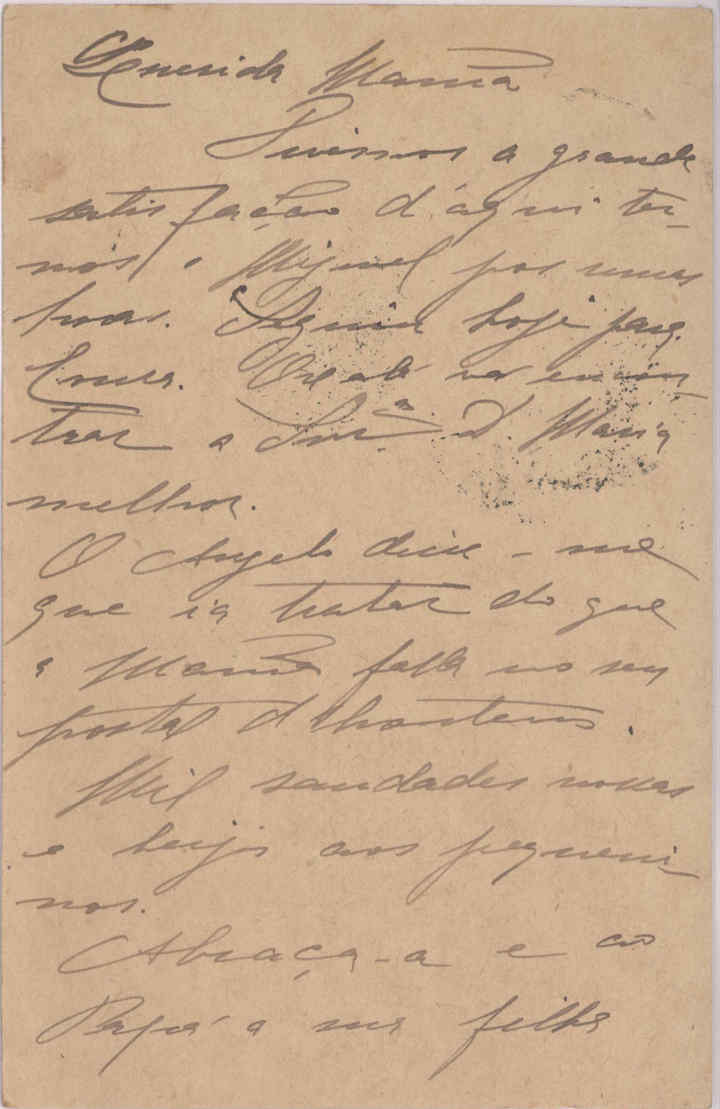 Querida Mamã
Tivemos a grande
satisfação d'aqui ter-
mos o Miguel por umas
horas. Seguiu hoje para
Oxalá vá encon
trar a Snr.ª D. Maria
melhor.
O Angelo disse-me
que ia tratar do que
a Mamã falla no seu
postal d'hontem.
Mil saudades nossas
e beijos aos pequeni
nos.
Abraça-a e ao
Papá a sua filha